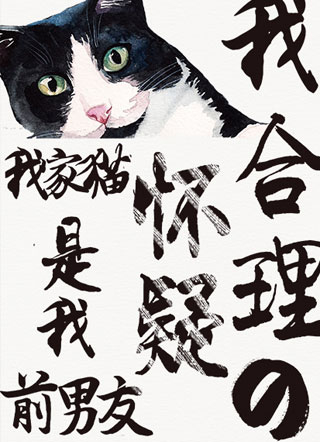 我合理の
怀疑
我家猫
是我
前男友